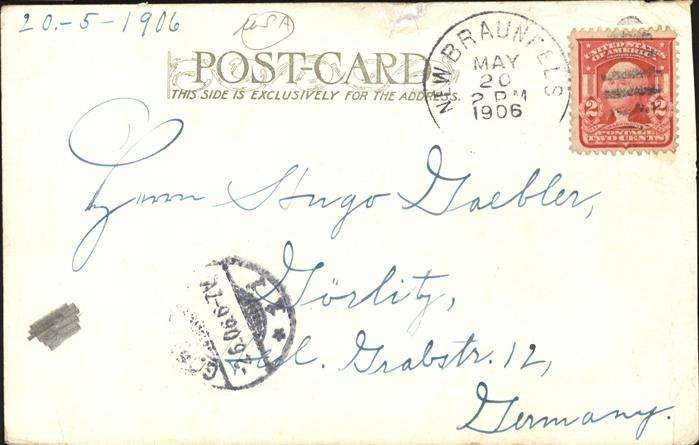 20.-5-1906
USA
POST-CARD
THIS SIDE IS EXCLUSIVELY FOR THE ADDRESS.
NEW BRAUNFELS
MAY
20
2 PM
1906
UNITED STATES
OF AMERICA
2 2
POSTAGE
TWO CENTS
Herrn Hugo Gaebler,
Görlitz,
Grabstr. 12,
Germany.